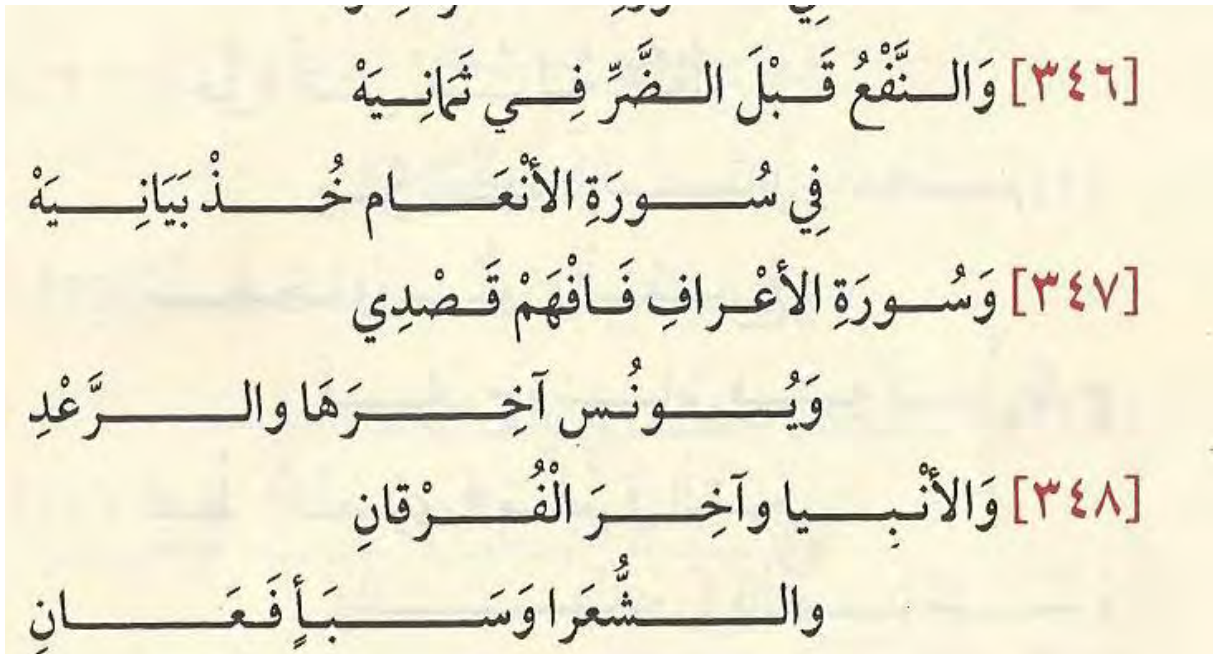 [٣٤٦] وَالنَّفْعُ قَبْلَ الضَّرِّ فِي ثَمَانِيَهْ
فِي سُورَةِ الأَنْعَام خُذْ بَيَانِيَهْ
[٣٤٧] وَسُورَةِ الأَعْرافِ فَافْهَمْ قَصْدِي
وَيُونُس آخِرَهَا والرَّعْدِ
[٣٤٨] وَالأَنْبِيا وآخِرَ الْفُرْقانِ
والشُّعَرا وَسَبَأٍ فَعَانِ